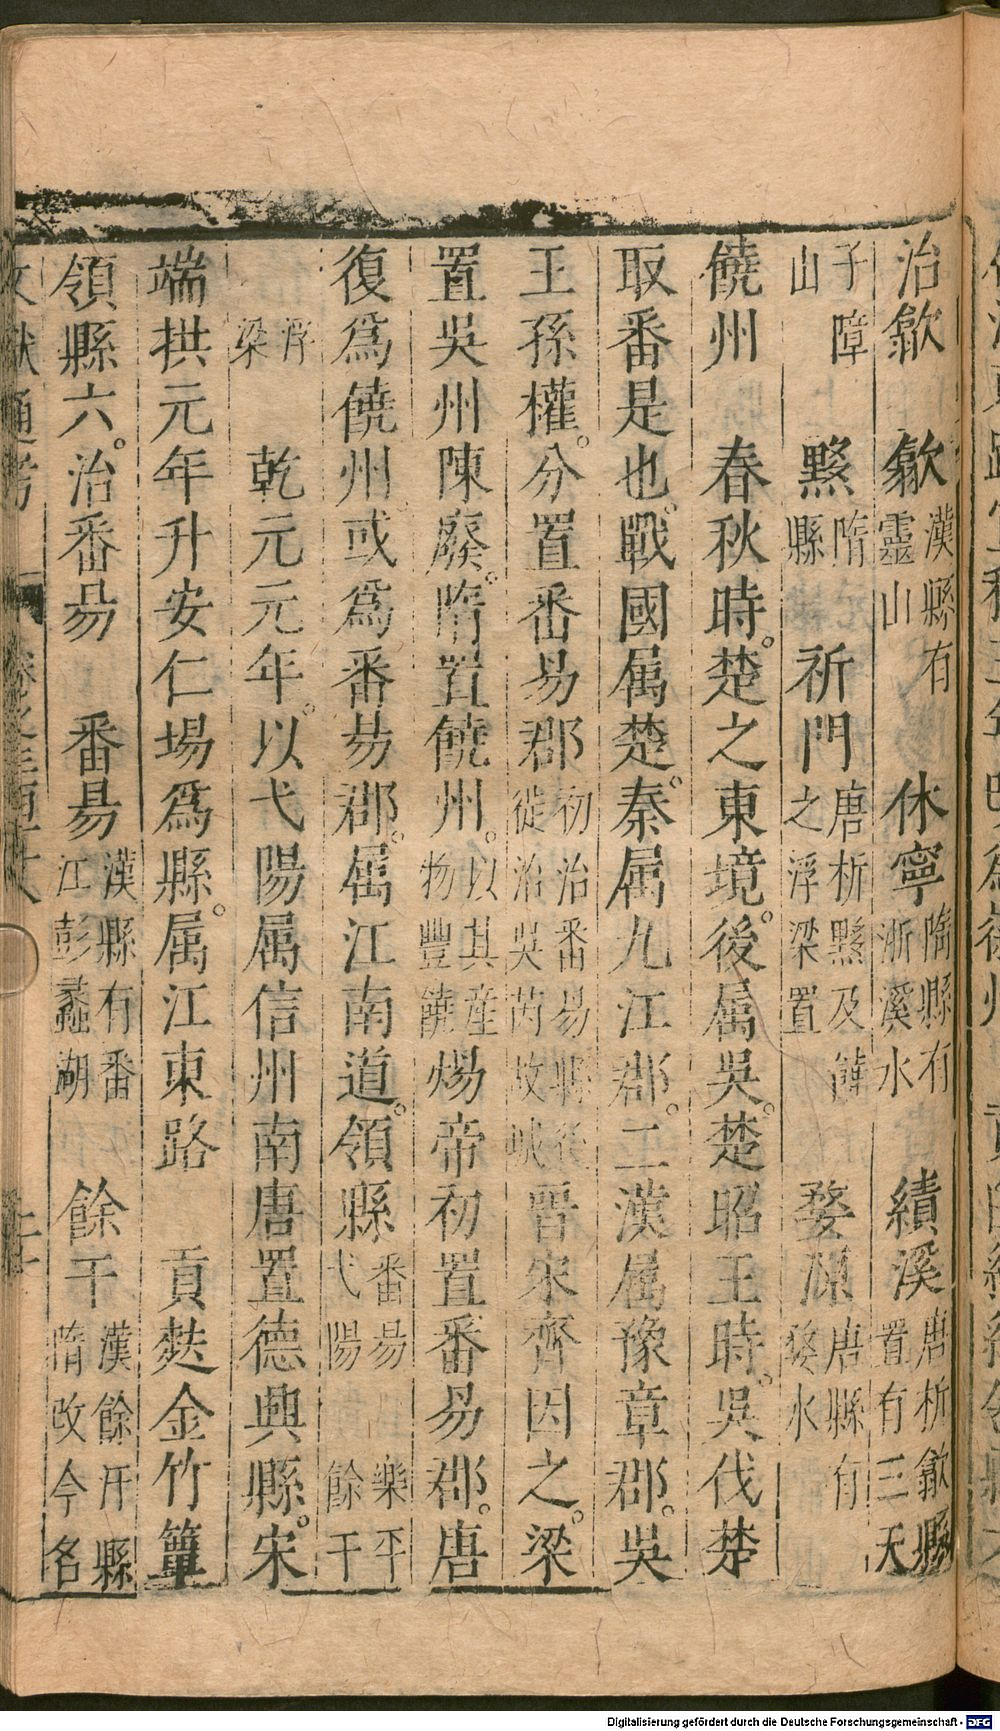 治歙　歙漢縣有靈山　休寧隋縣有浙溪水　績溪唐析歙縣置有三天
子障山　黟隋縣　祈門唐析黟及饒之浮梁置　婺源唐縣有婺水
饒州　春秋時。楚之東境。後属吳。楚昭王時。吳伐楚
取番是也。戰國属楚。秦属九江郡。二漢属豫章郡。吳
王孫權。分置番昜郡初治番昜縣後徙治吳芮故城晉宋齊因之。梁
置吳州陳廢。隋置饒州。以其産物豐饒煬帝初置番昜郡。唐
復爲饒州。或爲番昜郡。属江南道。領縣番昜　樂平弋陽　餘干
浮梁　乾元元年。以弋陽属信州南唐置德興縣。宋
端拱元年升安仁場爲縣。属江東路　貢麩金竹簟
領縣六。治番昜　番昜漢縣有番江彭蠡湖　餘干漢餘汗縣隋改今名
文獻通考
Digitalisierung gefördert durch die Deutsche Forschungsgemeinschaft - DFG